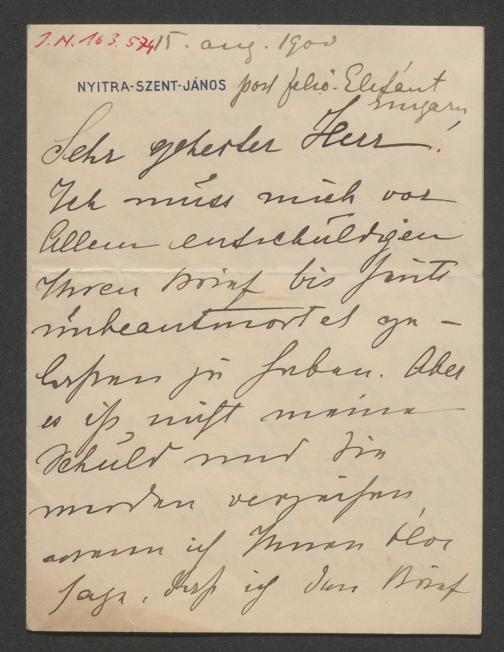 J.N. 163.574
15. aug. 1900
NYITRA-SZENT-JÁNOS post felső-Elefánt
Ungarn
Sehr geehrter Herr!
Ich muss mich vor
Allem entschuldigen
Ihren Brief bis heute
unbeantwortet ge-
lassen zu haben. Aber
es ist nicht meine
Schuld und Sie
werden verzeihen,
wenn ich Ihnen blos
sage, dass ich den Brief